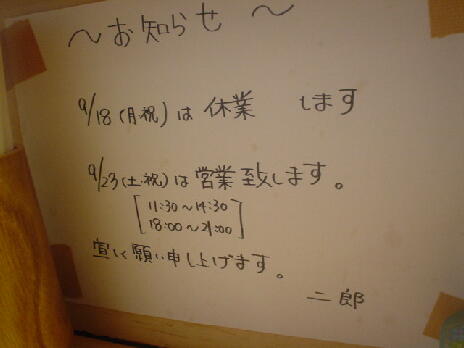 〜お知らせ〜
9/18(月祝)は休業 します
9/23(土・祝)は営業致します。
[11:30〜14:30
18:00〜21:00]
宜しく願い申し上げます。
二郎